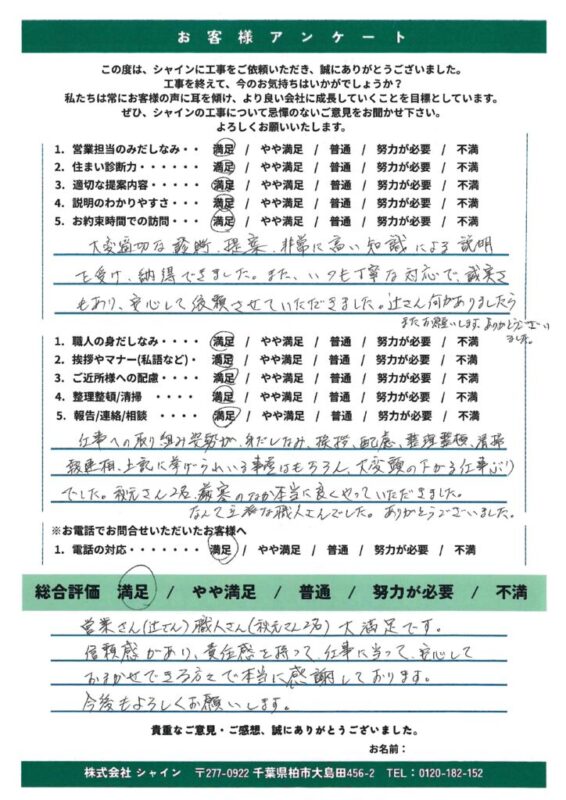 お客様アンケート
この度は、シャインに工事をご依頼いただき、誠にありがとうございました。
工事を終えて、今のお気持ちはいかがでしょうか?
私たちは常にお客様の声に耳を傾け、より良い会社に成長していくことを目標としています。
ぜひ、シャインの工事について忌憚のないご意見をお聞かせ下さい。
よろしくお願いいたします。
1. 営業担当のみだしなみ・・・ 満足 / やや満足 / 普通 / 努力が必要 / 不満
2. 住まい診断力・・・・・・ 満足 / やや満足 / 普通 / 努力が必要 / 不満
3. 適切な提案内容・・・・ 満足 / やや満足 / 普通 / 努力が必要 / 不満
4. 説明のわかりやすさ・・・ 満足 / やや満足 / 普通 / 努力が必要 / 不満
5. お約束時間での訪問・・・ 満足 / やや満足 / 普通 / 努力が必要 / 不満
大変適切な診断、提案、非常に高い知識による説明
を受け、納得できました。また、いつも丁寧な対応で、誠実さ
もあり、安心して依頼させていただきました。辻さん何かありましたら
またお願いします。ありがとうござい
ました。
1. 職人の身だしなみ・・・・ 満足 / やや満足 / 普通 / 努力が必要 / 不満
2. 挨拶やマナー(私語など)・ 満足 / やや満足 / 普通 / 努力が必要 / 不満
3. ご近所様への配慮・・・・ 満足 / やや満足 / 普通 / 努力が必要 / 不満
4. 整理整頓/清掃 ・・・・ 満足 / やや満足 / 普通 / 努力が必要 / 不満
5. 報告/連絡/相談 ・・・・ 満足 / やや満足 / 普通 / 努力が必要 / 不満
仕事への取り組み姿勢が、身だしなみ、挨拶、配慮、整理整頓、清掃
報連相、上記に挙げられいる事柄はもちろん、大変頭の下がる仕事ぶり
でした。秋元さん2名、猛暑のなか本当に良くやっていただきました。
なんて立派な職人さんでした。ありがとうございました。
※お電話でお問合せいただいたお客様へ
1. 電話の対応・・・・・・・ 満足 / やや満足 / 普通 / 努力が必要 / 不満
総合評価 満足 / やや満足 / 普通 / 努力が必要 / 不満
営業さん(辻さん)職人さん(秋元さん2名)大満足です。
信頼感があり、責任感を持って、仕事に当って、安心して
おまかせできる方々で本当に感謝しております。
今後もよろしくお願いします。
貴重なご意見・ご感想、誠にありがとうございました。
お名前:
株式会社 シャイン 〒277-0922 千葉県柏市大島田456-2 TEL:0120-182-152